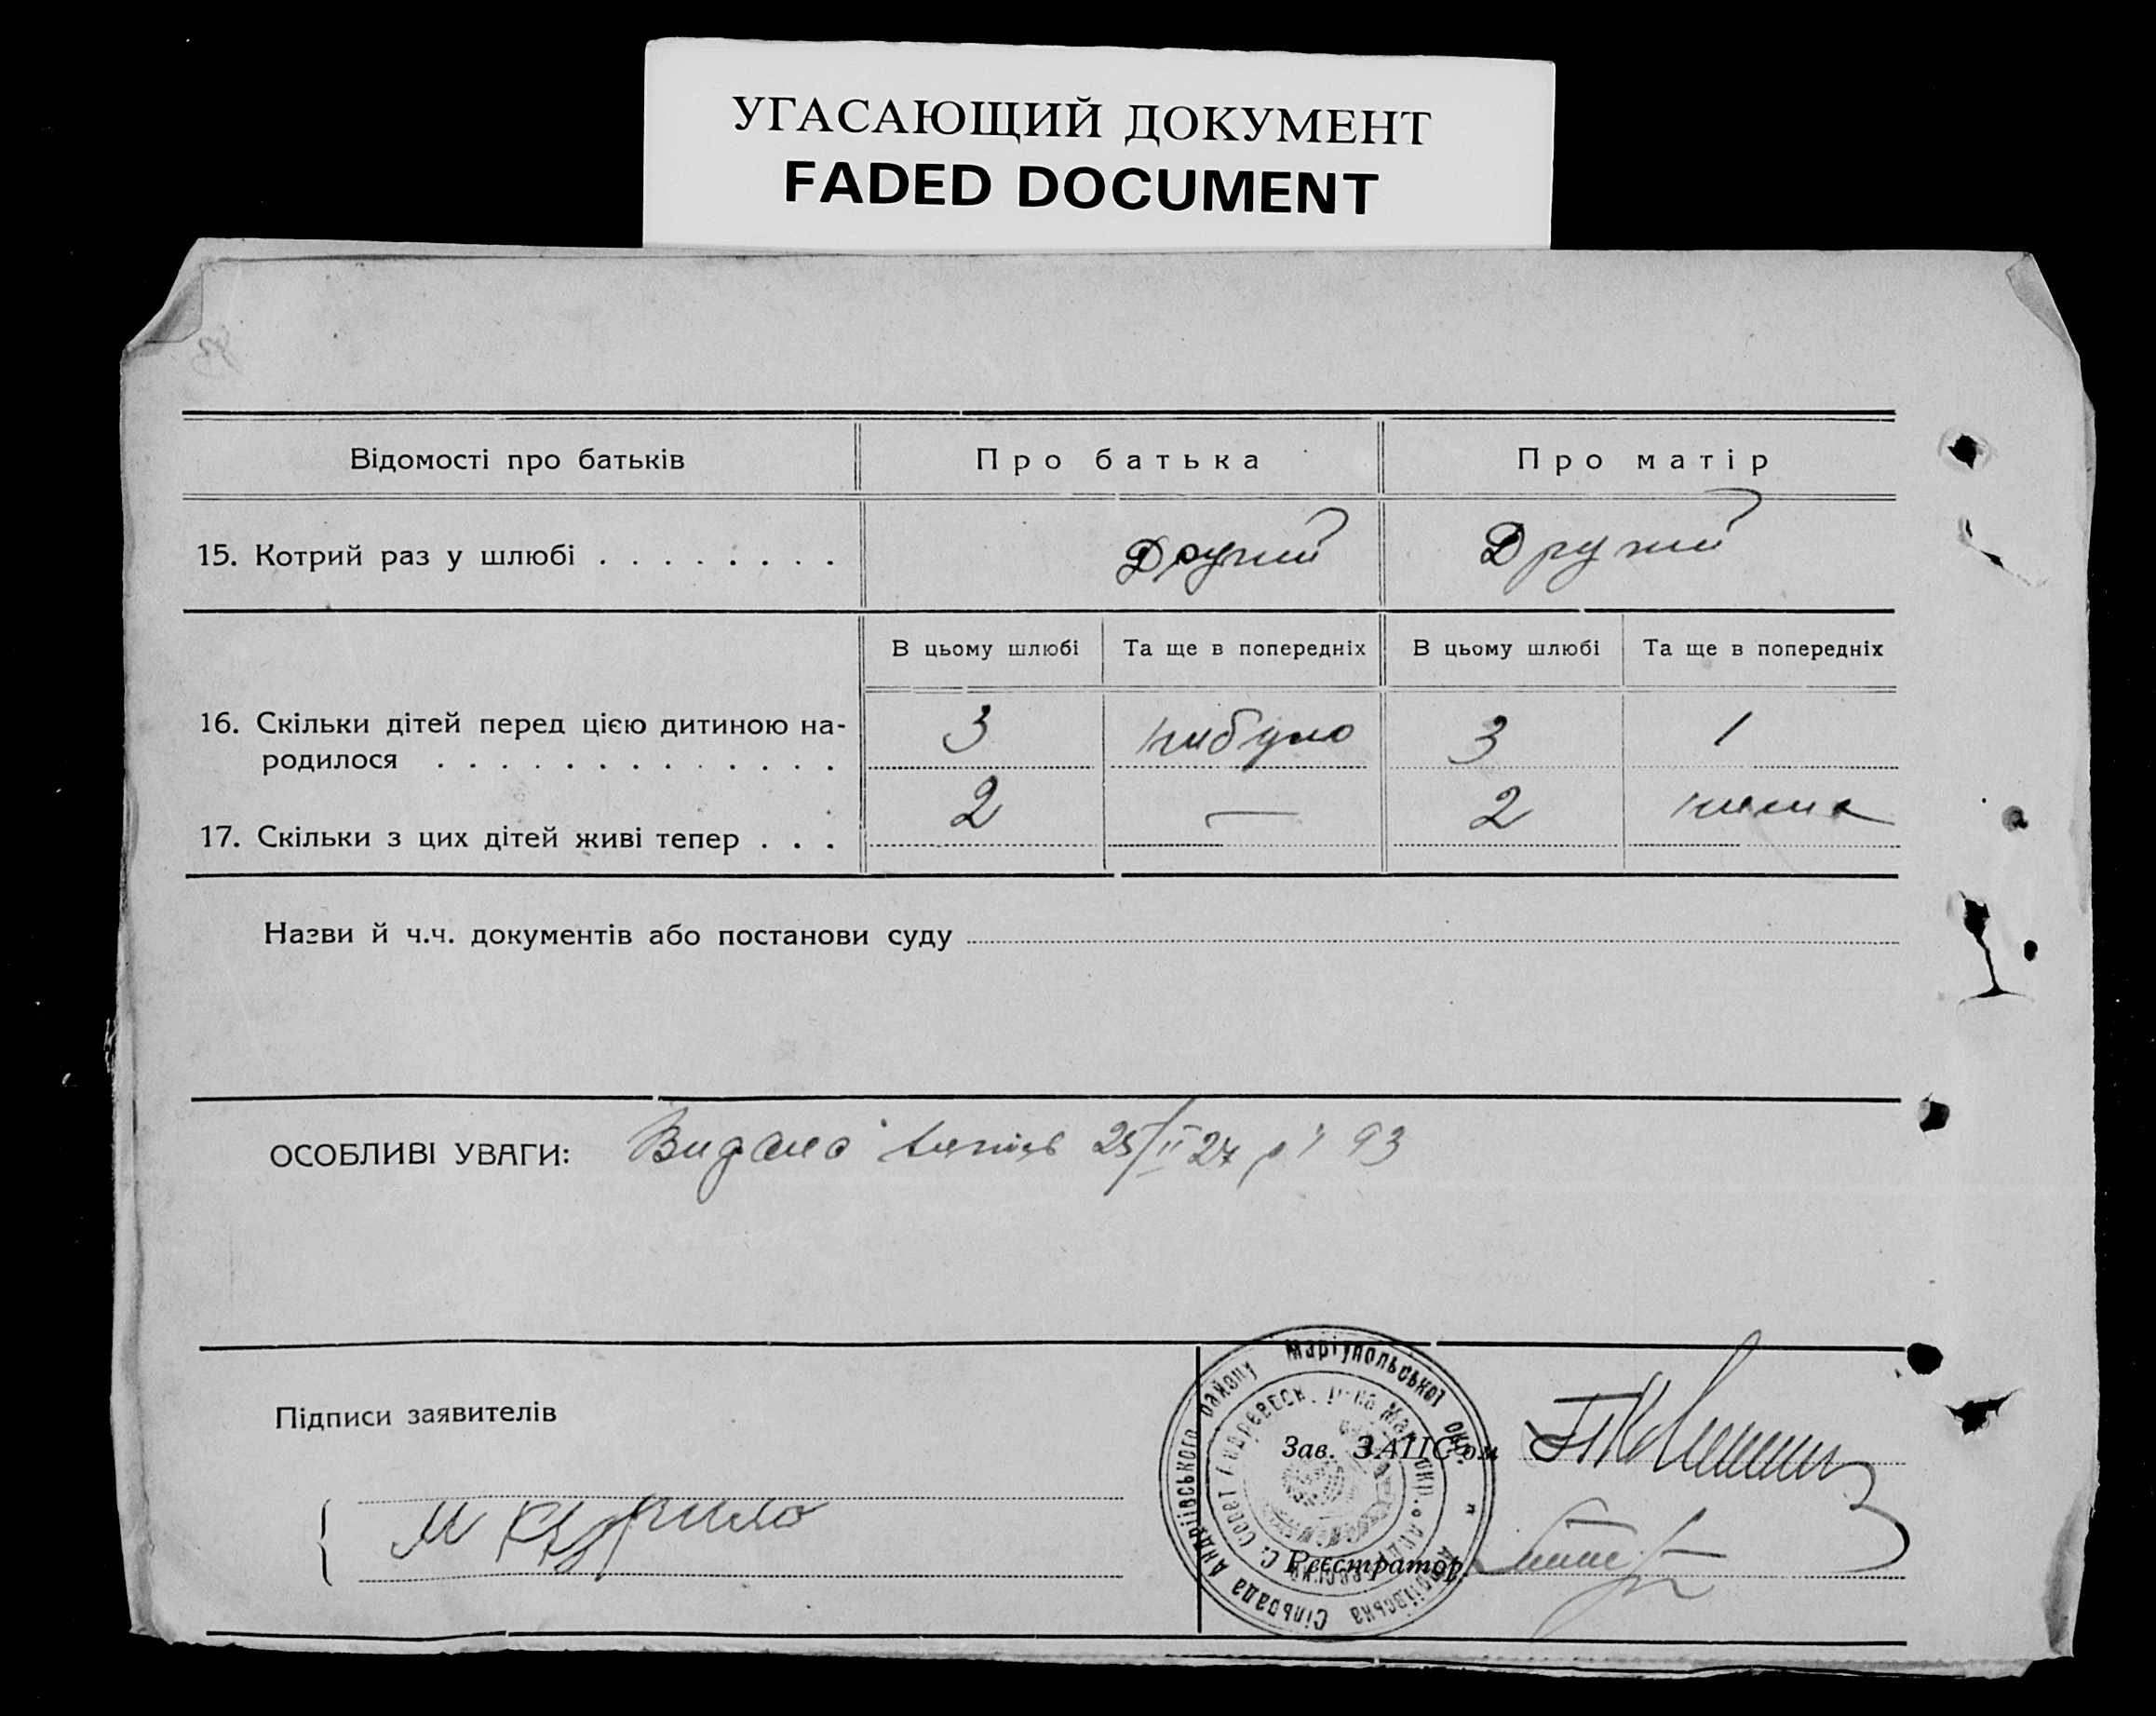 УГАСАЮЩИЙ ДОКУМЕНТ
FADED DOCUMENT
Відомості про батьків
Про батька
Про матір
15. Котрий раз у шлюбі . . . . . . . .
Другий
Другий
В цьому шлюбі
Та ще в попередніх
В цьому шлюбі
Та ще в попередніх
16. Скільки дітей перед цією дитиною на-
родилося . . . . . . . . . . . . .
3
небуло
3
1
17. Скільки з цих дітей живі тепер . . .
2
—
2
нема
Назви й ч.ч. документів або постанови суду
ОСОБЛИВІ УВАГИ:
Видано 25/II 27 р 93
Підписи заявителів
М Курило
Зав. ЗАПС'ом
Реєстратор
Андріївська Сільрада Андріївського району Маріупольської окр.